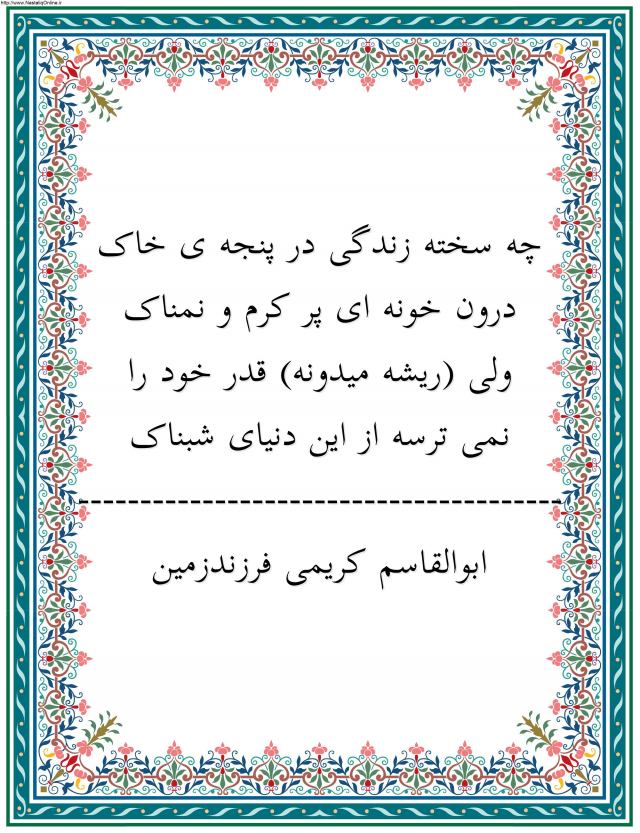 http://www.NastaliqOnline.ir
چه سخته زندگی در پنجه ی خاک
درون خونه ای پر کرم و نمناک
ولی (ریشه میدونه) قدر خود را
نمی ترسه از این دنیای شبناک
--------------------------------
ابوالقاسم کریمی فرزندزمین